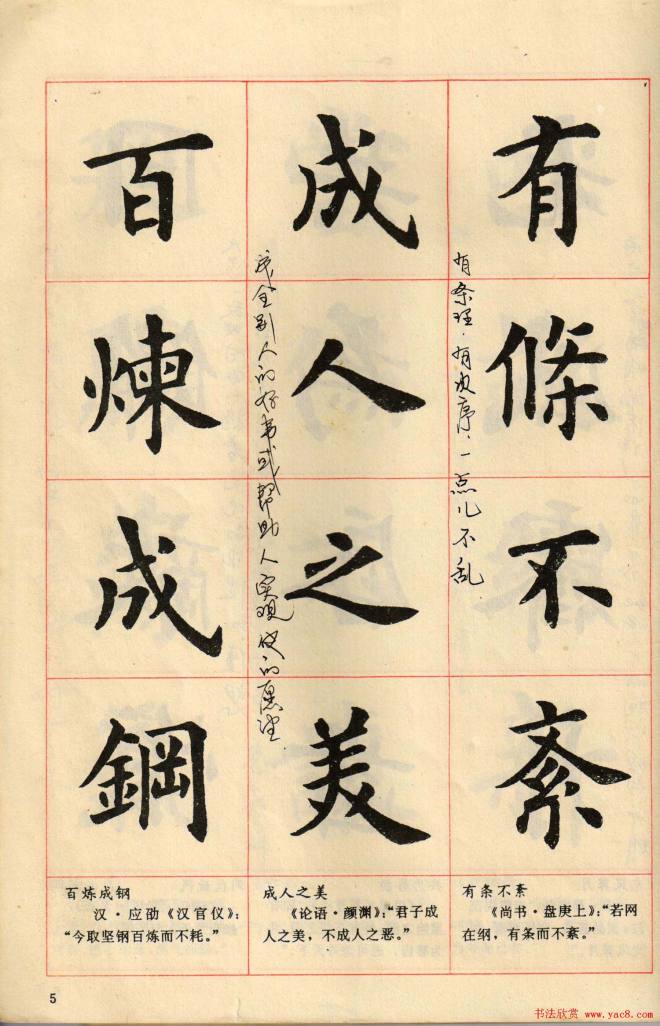 有條不紊
有条理.有次序.一点儿不乱
成人之美
成全别人的好事或帮助人实现他的愿望.
百煉成鋼
百炼成钢
汉·应劭《汉官仪》:
“今取坚钢百炼而不耗。”
成人之美
《论语·颜渊》:“君子成
人之美，不成人之恶。”
有条不紊
《尚书·盘庚上》:“若网
在纲，有条而不紊。”
5
书法欣赏 www.yac8.com